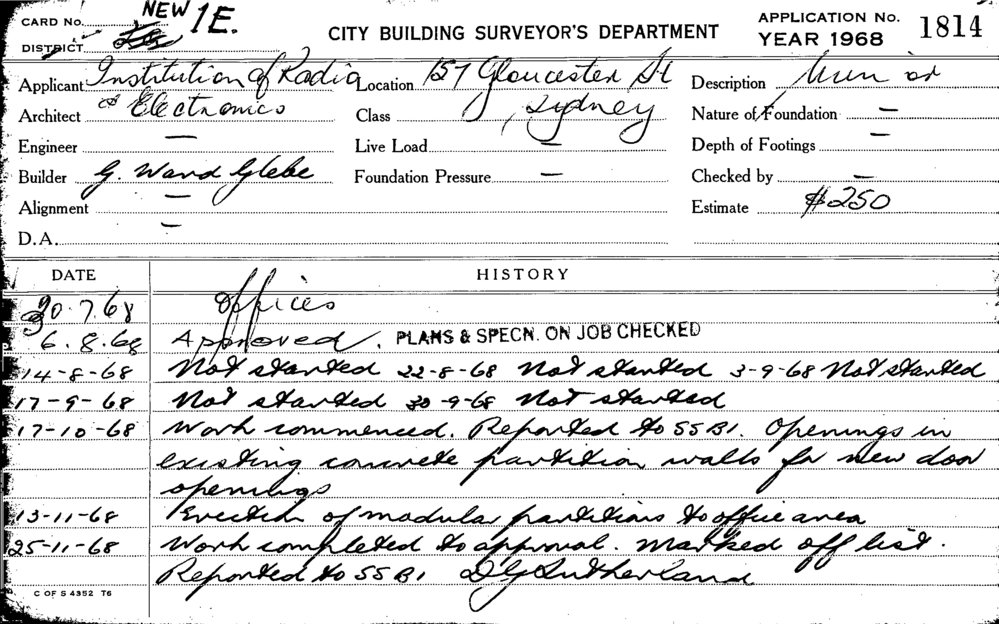 CARD No. NEW 1E.
DISTRICT
CITY BUILDING SURVEYOR'S DEPARTMENT
APPLICATION No. 1814
YEAR 1968
Applicant Institution of Radio Location 157 Gloucester St Description Min or
Architect & Electronics Class , Sydney Nature of Foundation —
Engineer — Live Load — Depth of Footings —
Builder G. Ward Glebe Foundation Pressure — Checked by —
Alignment — Estimate $250
D.A. —
DATE HISTORY
30.7.68 Offices
6.8.68 Approved. PLANS & SPECN. ON JOB CHECKED
14-8-68 Not started 22-8-68 Not started 3-9-68 Not started
17-9-68 Not started 30-9-68 Not started
17-10-68 Work commenced. Reported to SSB1. Openings in
existing concrete partition walls for new door
openings
13-11-68 Erection of modular partitions to office area
25-11-68 Work completed to approval. Marked off list.
Reported to SSB1 D G Sutherland
C OF S 4352 T6